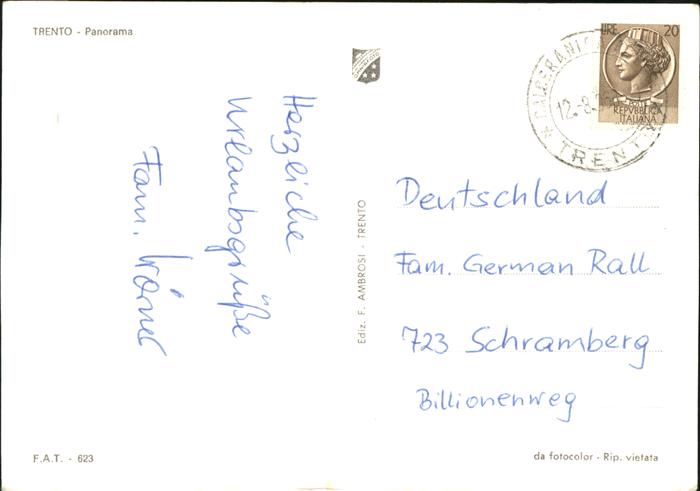 TRENTO - Panorama
LIRE 20
REPVBBLICA
ITALIANA
12.-8.
TRENT
Herzliche
Urlaubsgrüße
Fam. Wörner
Ediz. F. AMBROSI - TRENTO
Deutschland
Fam. German Rall
723 Schramberg
Billionenweg
F.A.T. - 623
da fotocolor - Rip. vietata